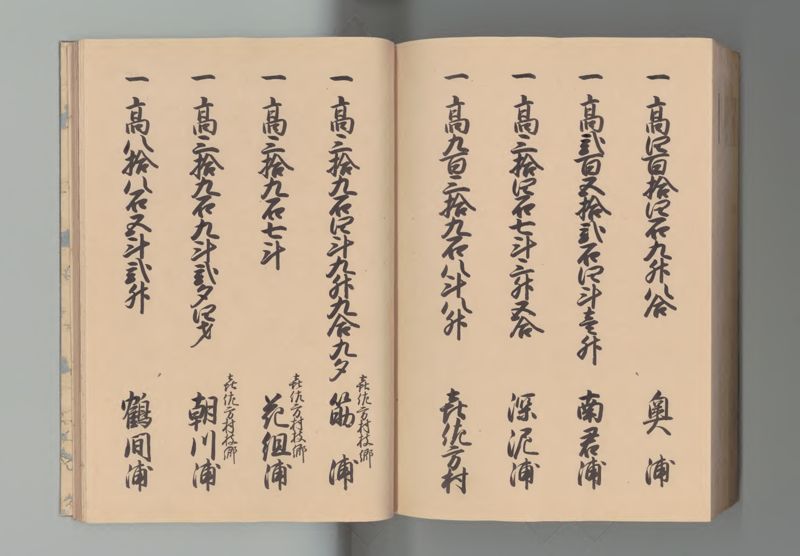 一 高四百拾四石九升八合 奥浦
一 高弐百五拾弐石四斗壱升 南君浦
一 高三拾四石七斗六升五合 深泥浦
一 高九百三拾九石八斗八升 喜佐方村
一 高三拾九石四斗九升九合九夕 喜佐方村枝郷 筋浦
一 高三拾九石七斗 喜佐方村枝郷 花組浦
一 高三拾九石九斗弐夕四才 喜佐方村枝郷 朝川浦
一 高八拾八石五斗弐升 鶴間浦